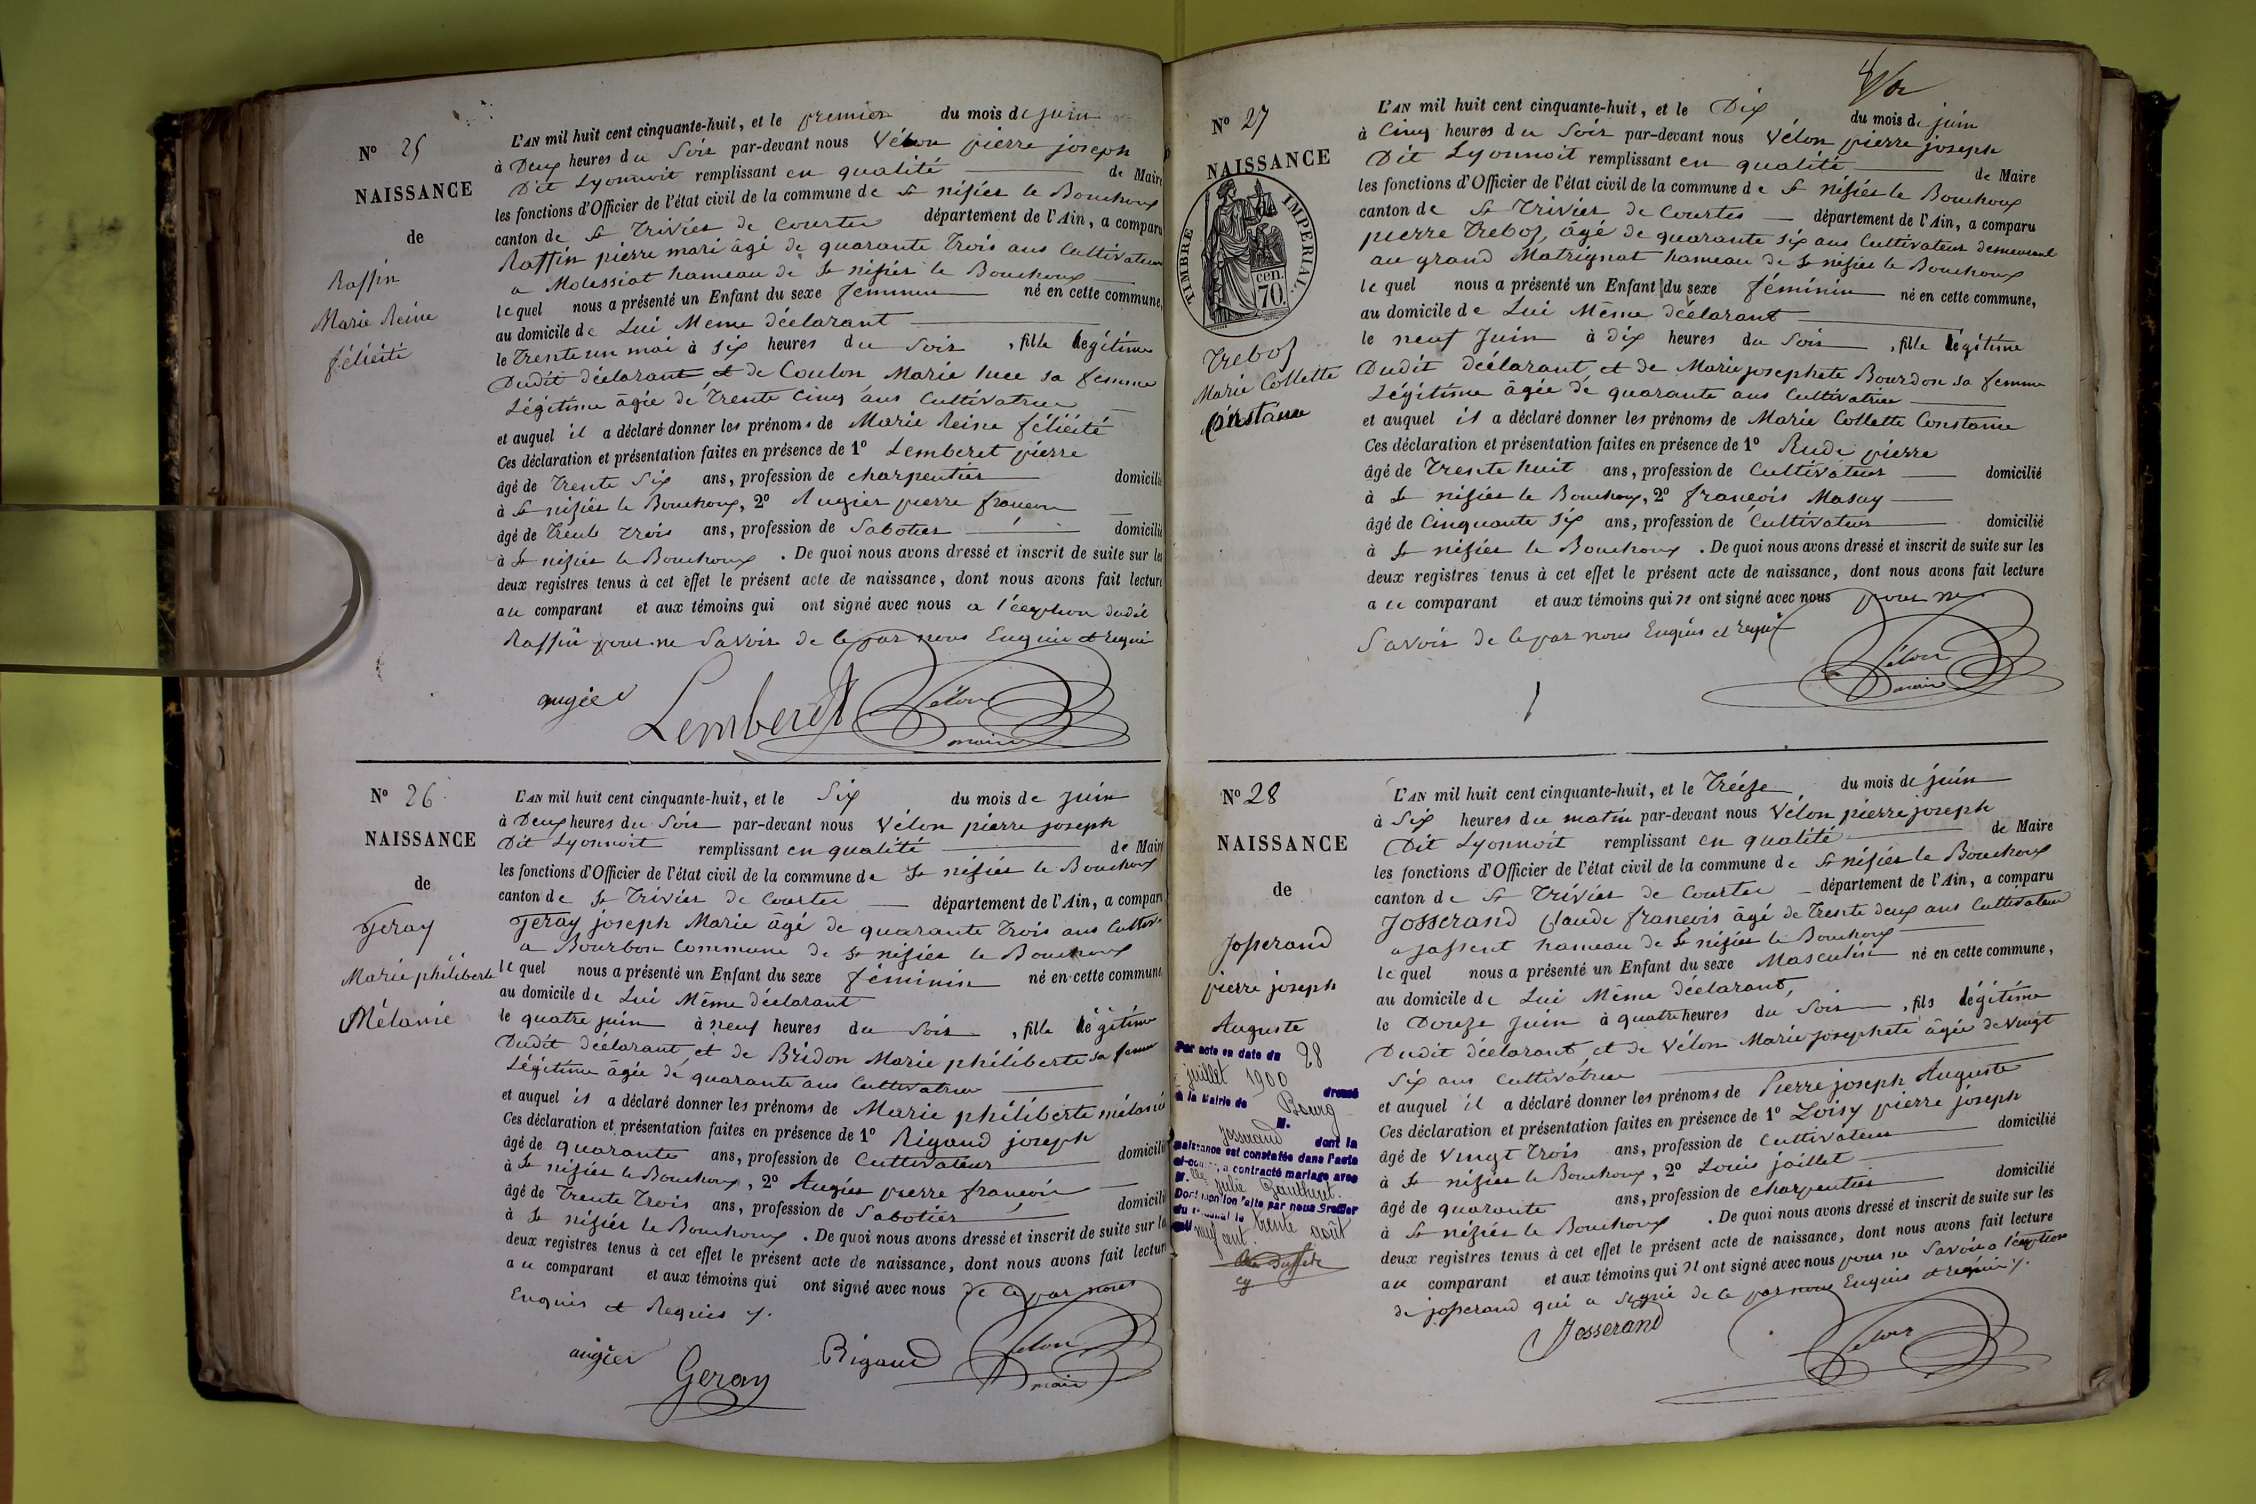 Nº 25
NAISSANCE
de
Raffin
Marie Reine
félicité
L'AN mil huit cent cinquante-huit, et le premier du mois de juin
à Deux heures du Soir par-devant nous Vélon pierre joseph
Dit Lyonnoit remplissant en qualité de Maire
les fonctions d'Officier de l'état civil de la commune de St nisiér le Bouchoux
canton de St Triviér de Courter département de l'Ain, a comparu
Raffin pierre mari âgé de quarante Trois ans Cultivateur
a Molessiat hameau de St nisiér le Bouchoux
lequel nous a présenté un Enfant du sexe femmin né en cette commune,
au domicile de Lui Même déclarant
le Trente un mai à six heures du Soir, fille légitime
Dudit déclarant et de Coulon Marie luce sa femme
Légitime âgée de Trente Cinq ans Cultivatrice
et auquel il a déclaré donner les prénoms de Marie Reine félicité
Ces déclaration et présentation faites en présence de 1º Lemberet pierre
âgé de Trente Six ans, profession de charpentier domicilié
à St nisiér le Bouchoux, 2º Augier pierre françois
âgé de Trente trois ans, profession de Sabotier domicilié
à St nisiér le Bouchoux. De quoi nous avons dressé et inscrit de suite sur les
deux registres tenus à cet effet le présent acte de naissance, dont nous avons fait lecture
au comparant et aux témoins qui ont signé avec nous a l'éception dudit
Raffin pour ne Savoir de Ce par nous Enquie et Requi
augier Lemberet Vélon
maire
Nº 26
NAISSANCE
de
Geray
Marie philiberte
Mélanie
L'AN mil huit cent cinquante-huit, et le Six du mois de juin
à Deux heures du Soir par-devant nous Vélon pierre joseph
Dit Lyonnoit remplissant en qualité de Maire
les fonctions d'Officier de l'état civil de la commune de St nisiér le Bouchoux
canton de St Triviér de Courter département de l'Ain, a comparu
Geray joseph Marie âgé de quarante Trois ans Cultivr
a Bourbon Commune de St nisiér le Bouchoux
lequel nous a présenté un Enfant du sexe féminin né en cette commune
au domicile de Lui Même déclarant
le quatre juin à neuf heures du Soir, fille légitime
Dudit déclarant et de Bridon Marie philiberte sa femme
Légitime âgée de quarante ans Cultivatrice
et auquel il a déclaré donner les prénoms de Marie philiberte mélanie
Ces déclaration et présentation faites en présence de 1º Rigaud joseph
âgé de quarante ans, profession de Cultivateur domicilié
à St nisiér le Bouchoux, 2º Augier pierre françois
âgé de Trente Trois ans, profession de Sabotier domicilié
à St nisiér le Bouchoux. De quoi nous avons dressé et inscrit de suite sur les
deux registres tenus à cet effet le présent acte de naissance, dont nous avons fait lecture
au comparant et aux témoins qui ont signé avec nous de Ce par nous
Enquis et Requis
augier Geray Rigaud Vélon
maire
Nº 27
NAISSANCE
TIMBRE IMPERIAL
cen.
70.
Treboz
Marie Collette
Constance
L'AN mil huit cent cinquante-huit, et le Dix du mois de juin
à Cinq heures du Soir par-devant nous Vélon pierre joseph
Dit Lyonnoit remplissant en qualité de Maire
les fonctions d'Officier de l'état civil de la commune de St nisiér le Bouchoux
canton de St Triviér de Courtes département de l'Ain, a comparu
pierre Treboz, âgé de quarante six ans Cultivateur demeurant
au grand Matrignat hameau de St nisiér le Bouchoux
lequel nous a présenté un Enfant du sexe féminin né en cette commune,
au domicile de Lui Même déclarant
le neuf Juin à dix heures du Soir, fille légitime
Dudit déclarant et de Marie josephete Bourdon sa femme
Légitime âgée de quarante ans Cultivatrice
et auquel il a déclaré donner les prénoms de Marie Collette Constance
Ces déclaration et présentation faites en présence de 1º Rude pierre
âgé de Trente huit ans, profession de Cultivateur domicilié
à St nisiér le Bouchoux, 2º françois Masuy
âgé de Cinquante six ans, profession de Cultivateur domicilié
à St nisiér le Bouchoux. De quoi nous avons dressé et inscrit de suite sur les
deux registres tenus à cet effet le présent acte de naissance, dont nous avons fait lecture
au comparant et aux témoins qui n ont signé avec nous pour ne
Savoir de Ce par nous Enquis et requi
Vélon
maire
Nº 28
NAISSANCE
de
Josserand
pierre joseph
Auguste
Par acte en date du 28
juillet 1900 dressé
à la Mairie de Bourg
M. Josserand dont la
naissance est constatée dans l'acte
ci-contre, a contracté mariage avec
M. elle Julie Gauthuret.
Dont mention faite par nous Greffier
du tribunal le trente août
mil neuf cent.
L'AN mil huit cent cinquante-huit, et le Tréize du mois de juin
à Six heures du matin par-devant nous Vélon pierre joseph
Dit Lyonnoit remplissant en qualité de Maire
les fonctions d'Officier de l'état civil de la commune de St nisiér le Bouchoux
canton de St Triviér de Courter département de l'Ain, a comparu
Josserand Claude françois âgé de Trente deux ans Cultivateur
a jassent hameau de St nisiér le Bouchoux
lequel nous a présenté un Enfant du sexe Masculin né en cette commune,
au domicile de Lui Même déclarant,
le Douze juin à quatre heures du Soir, fils légitime
Dudit déclarant et de Vélon Marie josephete âgée de vingt
Six ans Cultivatrice
et auquel il a déclaré donner les prénoms de Pierre joseph Auguste
Ces déclaration et présentation faites en présence de 1º Loisy pierre joseph
âgé de Vingt Trois ans, profession de Cultivateur domicilié
à St nisiér le Bouchoux, 2º Louis jaillet
âgé de quarante ans, profession de charpentier domicilié
à St nisiér le Bouchoux. De quoi nous avons dressé et inscrit de suite sur les
deux registres tenus à cet effet le présent acte de naissance, dont nous avons fait lecture
au comparant et aux témoins qui n ont signé avec nous pour ne Savoir a l'éception
de josserand qui a Signé de Ce par nous Enquis et requis
Josserand
Vélon